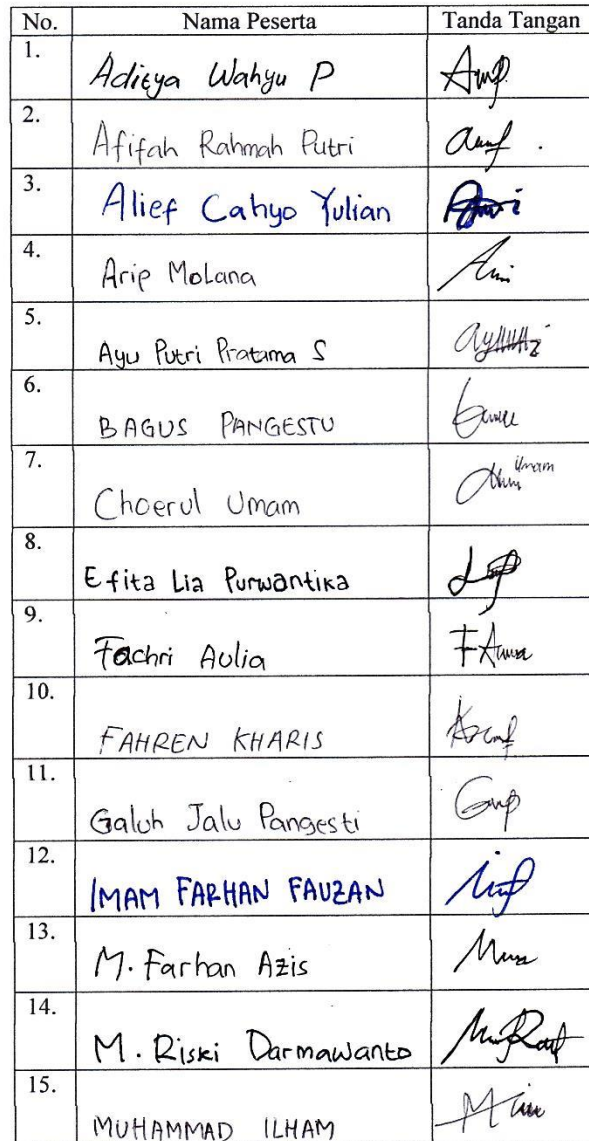 No. Nama Peserta Tanda Tangan
1. Adieya Wahyu P
2. Afifah Rahmah Putri
3. Alief Cahyo Yulian
4. Arip MoLana
5. Ayu Putri Pratama S
6. BAGUS PANGESTU
7. Choerul Umam Umam
8. Efita Lia Purwantika
9. Fachri Aulia
10. FAHREN KHARIS
11. Galuh Jalu Pangesti
12. IMAM FARHAN FAUZAN
13. M. Farhan Azis
14. M. Riski Darmawanto
15. MUHAMMAD ILHAM